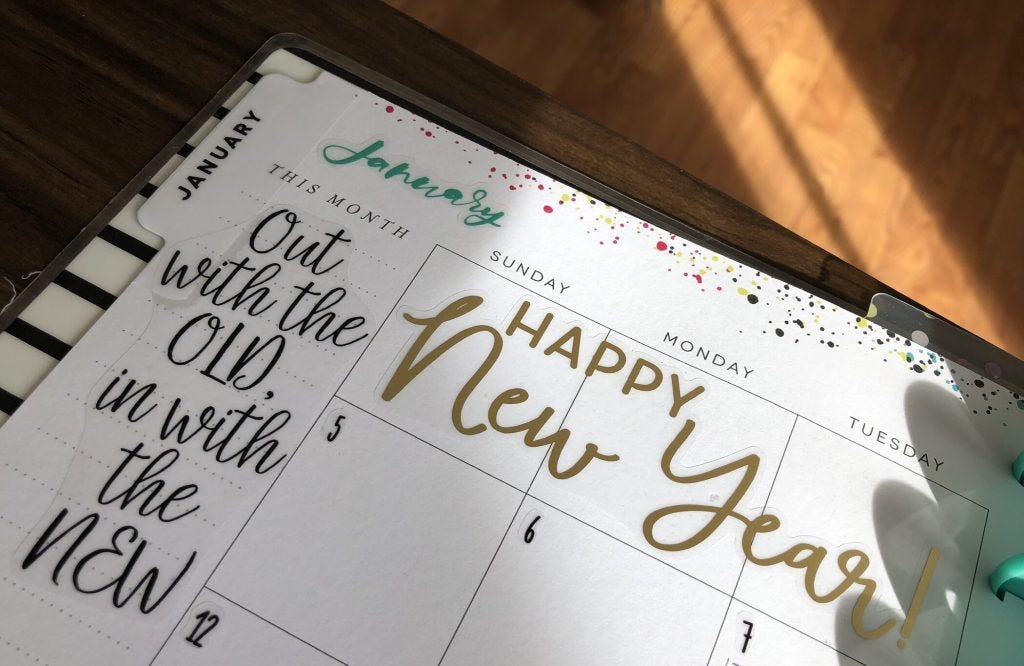 JANUARY
January
THIS MONTH
Out
with the
OLD,
in with
the
NEW
SUNDAY
MONDAY
TUESDAY
HAPPY
New Year!
5
6
7
12